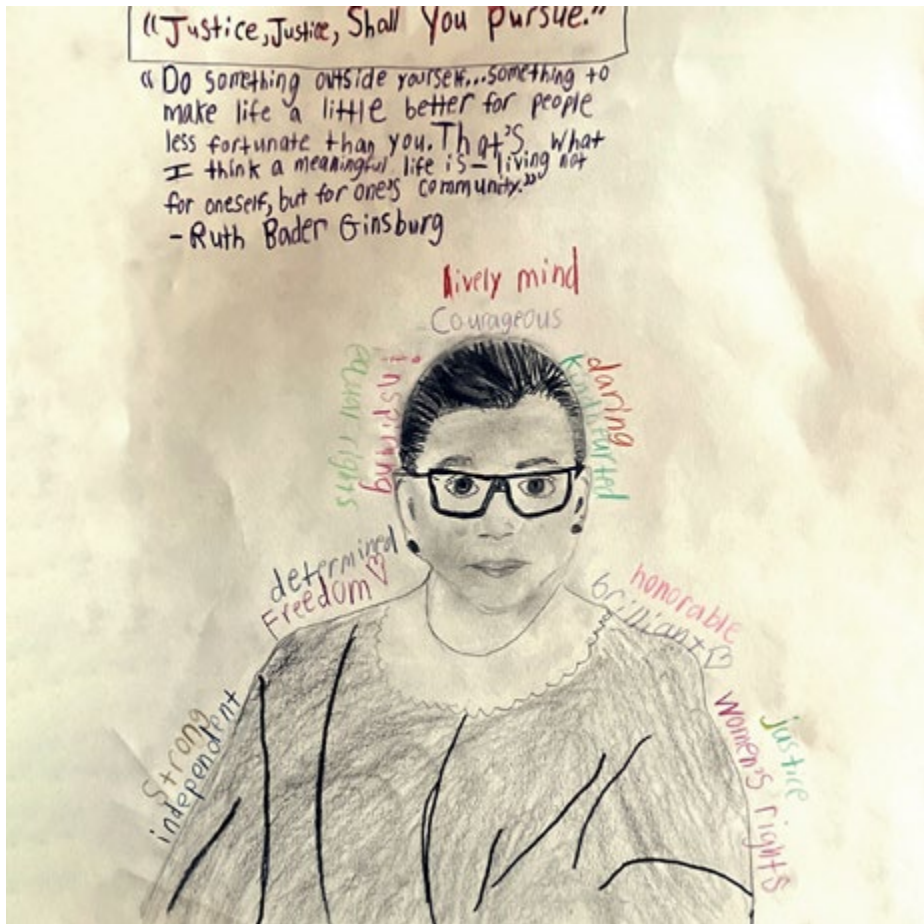 “Justice, Justice, Shall You Pursue.”
“Do something outside yourself...something to
make life a little better for people
less fortunate than you. That's what
I think a meaningful life is – living not
for oneself, but for one's community.”
- Ruth Bader Ginsburg
lively mind
Courageous
equal rights
inspiring
daring
determined
Freedom
honorable
brilliant
Strong
independent
women's rights
justice